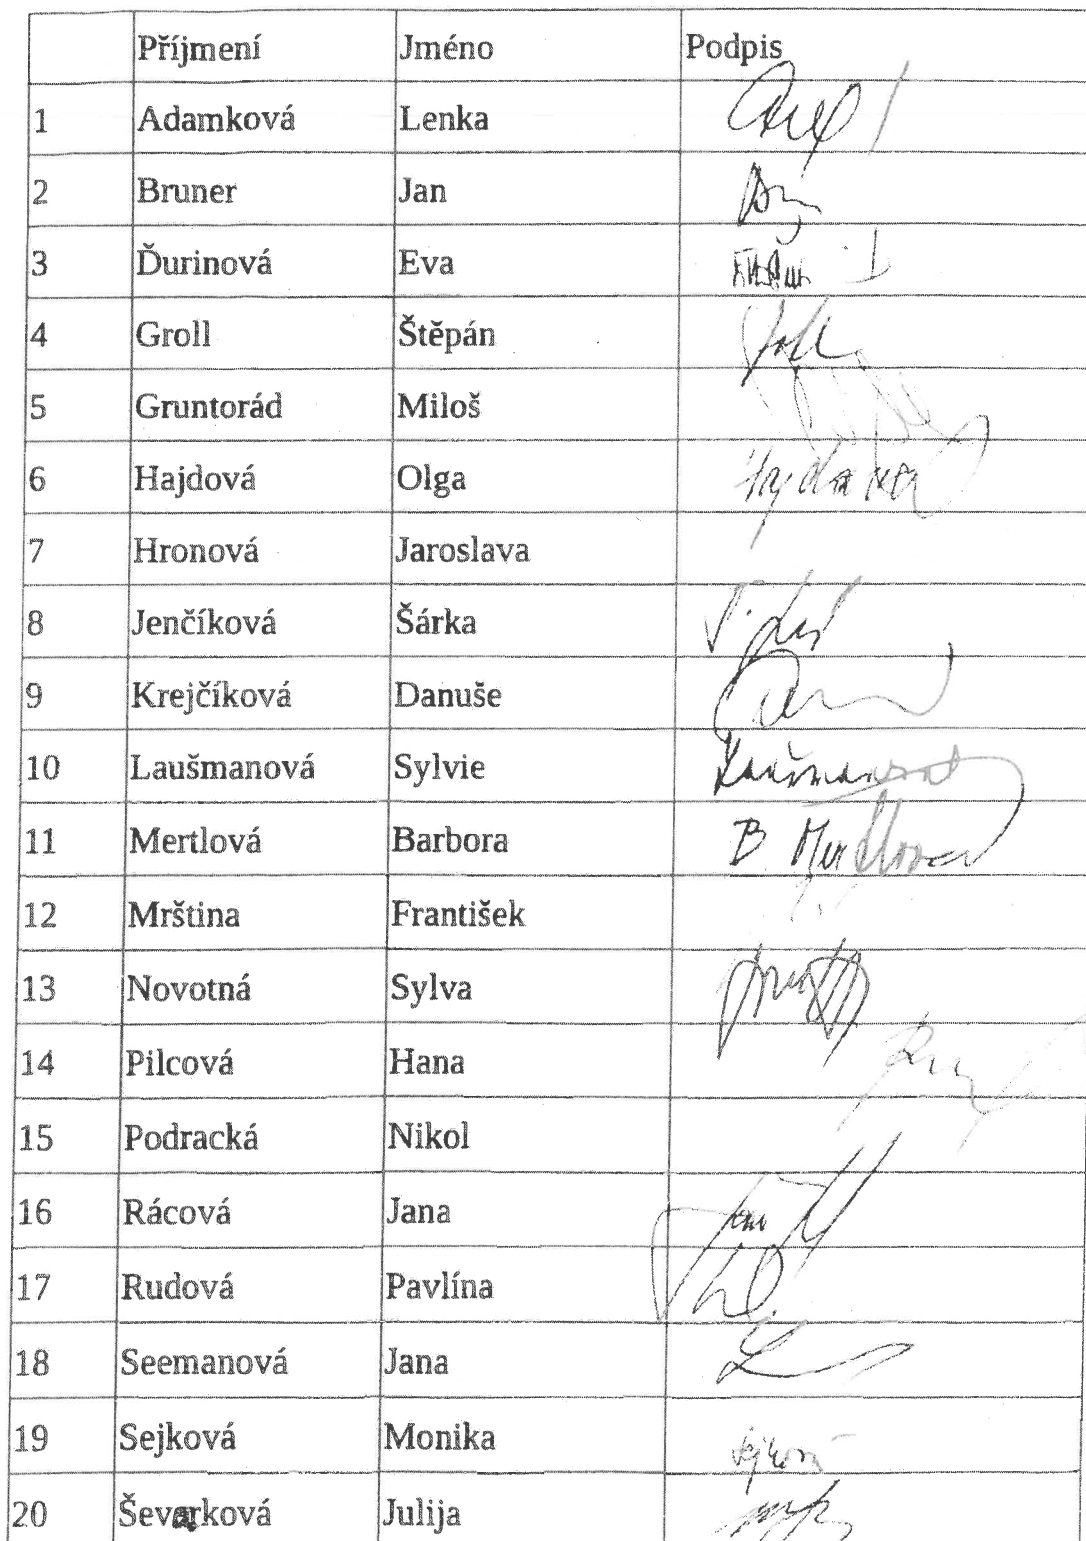 Příjmení Jméno Podpis
1 Adamková Lenka
2 Bruner Jan
3 Ďurinová Eva
4 Groll Štěpán
5 Gruntorád Miloš
6 Hajdová Olga Hajdová
7 Hronová Jaroslava
8 Jenčíková Šárka
9 Krejčíková Danuše
10 Laušmanová Sylvie Laušmanová
11 Mertlová Barbora B. Mertlová
12 Mrština František
13 Novotná Sylva
14 Pilcová Hana
15 Podracká Nikol
16 Rácová Jana
17 Rudová Pavlína
18 Seemanová Jana
19 Sejková Monika Sejková
20 Julija